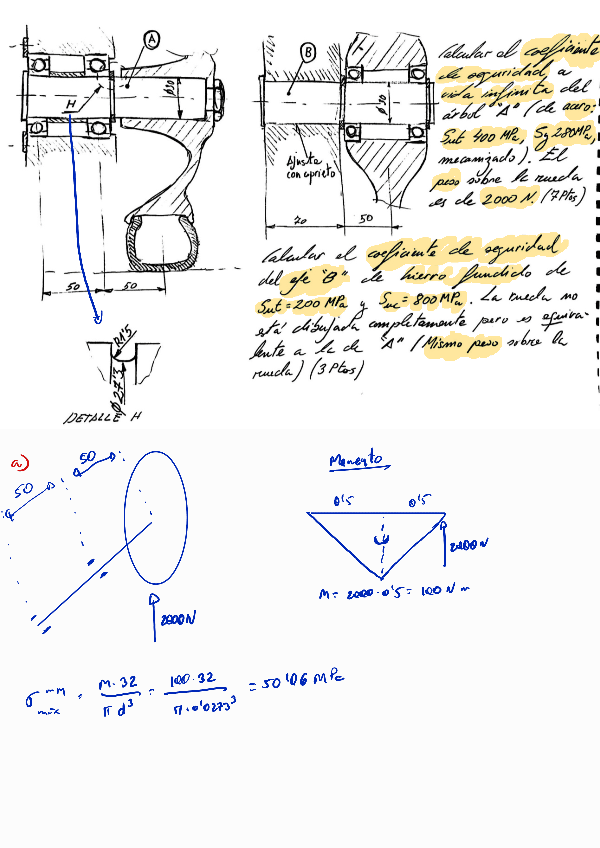 A
H
Ø30
50
50
R1'5
Ø27'3
DETALLE H
B
Ø30
Ajuste
con aprieto
70
50
Calcular el coeficiente
de seguridad a
vida infinita del
árbol "A" (de acero:
Sut 400 MPa, Sy 280MPa,
mecanizado). El
peso sobre la rueda
es de 2000 N. (7 Ptos)
Calcular el coeficiente de seguridad
del eje "B" de hierro fundido de
Sut = 200 MPa y Suc = 800 MPa. La rueda no
está dibujada completamente pero es equiva-
lente a la de "A" (Mismo peso sobre la
rueda) (3 Ptos)
a)
50
50
2000N
Momento
0'5 0'5
2000N
M = 2000·0'5 = 100 N m
σ max = M·32 / π d³ = 100·32 / π·0'0273³ = 50'06 MPa